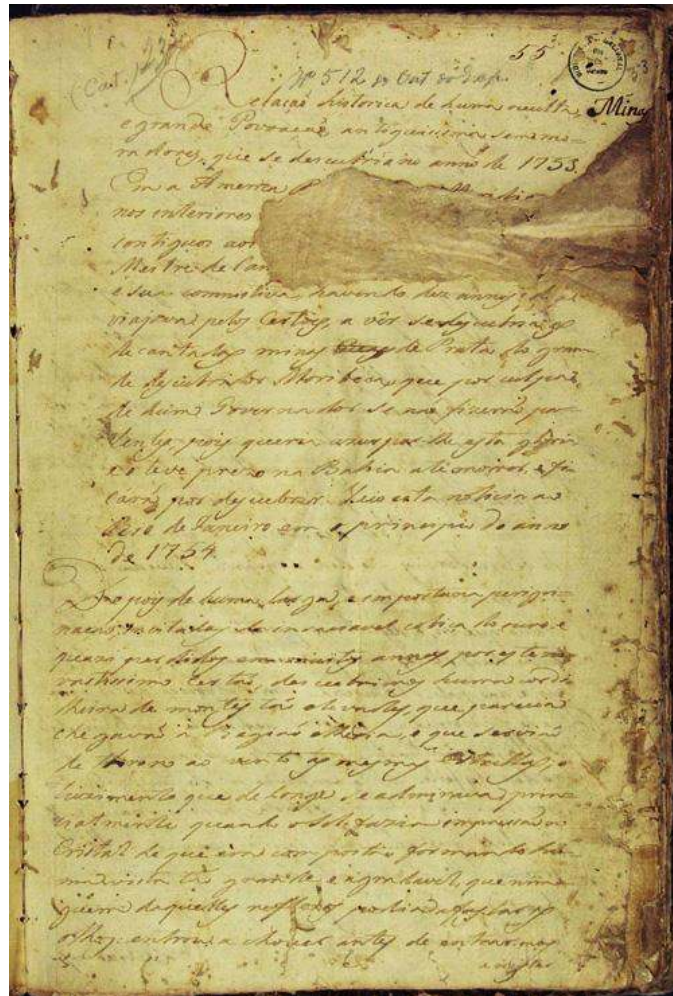 55
Nº 512 do Cat. da Exp.
Relação historica de huma occulta,
Minas
e grande Povoação, antiquissima sem mo-
radores, que se descubriu no anno de 1753.
Em a America
nos interiores
contiguos aos
Mestre de Can
e sua commitiva, havendo dez annos, que
viajava pelos Certões, a vêr se descubria as
decantadas minas de Prata do gran-
de descubridor Moribeca, que por culpa
de hum Governador se não fizerão pa-
tentes, pois queria uzurpar-lhe esta gloria
e o teve prezo na Bahia até morrer, e fi-
carão por descubrir. Veio esta noticia ao
Rio de Janeiro em o principio do anno
de 1754.
Depois de huma larga, e importuna perigri-
nação, incitados da insaciavel cobiça do ouro e
quazi perdidos em muitos annos por este
vastissimo Certão, descubrimos huma cordi-
lheira de montes tão elevados, que parecia
chegavão á Região etheria, e que servião
de throno ao vento, ás mesmas Estrellas; o
luzimento que de longe se admirava, prin-
cipalmente quando o Sol fazia impressão ao
Cristal de que era composta, formando hu-
ma vista tão grande e agradavel, que nin-
guem daquelles reflexos podia afastar os
olhos: entrou a chover antes de entrarmos